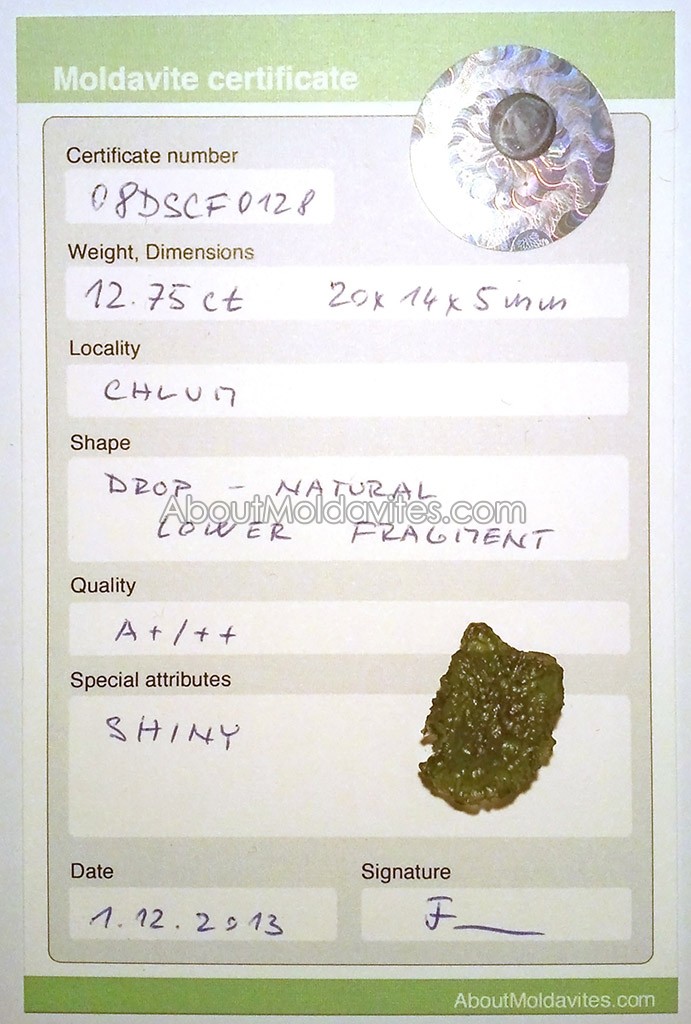 Moldavite certificate
Certificate number
08DSCF0128
Weight, Dimensions
12.75 ct 20x14x5 mm
Locality
CHLUM
Shape
DROP - NATURAL
AboutMoldavites.com
LOWER FRAGMENT
Quality
A+/++
Special attributes
SHINY
Date
Signature
1.12.2013
F
AboutMoldavites.com